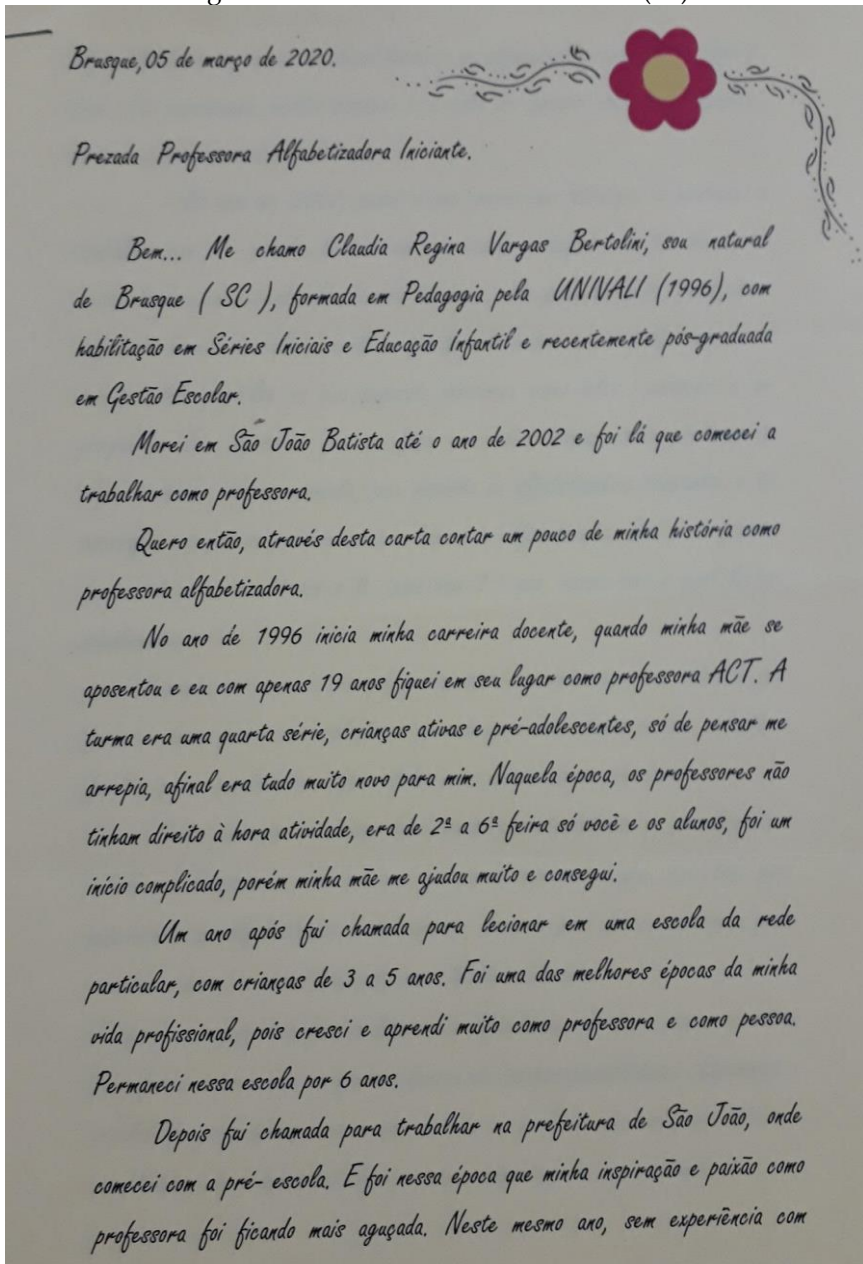 Brusque, 05 de março de 2020.
Prezada Professora Alfabetizadora Iniciante.
Bem... Me chamo Claudia Regina Vargas Bertolini, sou natural
de Brusque ( SC ), formada em Pedagogia pela UNIVALI (1996), com
habilitação em Séries Iniciais e Educação Infantil e recentemente pós-graduada
em Gestão Escolar.
Morei em São João Batista até o ano de 2002 e foi lá que comecei a
trabalhar como professora.
Quero então, através desta carta contar um pouco de minha história como
professora alfabetizadora.
No ano de 1996 inicia minha carreira docente, quando minha mãe se
aposentou e eu com apenas 19 anos fiquei em seu lugar como professora ACT. A
turma era uma quarta série, crianças ativas e pré-adolescentes, só de pensar me
arrepia, afinal era tudo muito novo para mim. Naquela época, os professores não
tinham direito à hora atividade, era de 2ª a 6ª feira só você e os alunos, foi um
início complicado, porém minha mãe me ajudou muito e consegui.
Um ano após fui chamada para lecionar em uma escola da rede
particular, com crianças de 3 a 5 anos. Foi uma das melhores épocas da minha
vida profissional, pois cresci e aprendi muito como professora e como pessoa.
Permaneci nessa escola por 6 anos.
Depois fui chamada para trabalhar na prefeitura de São João, onde
comecei com a pré- escola. E foi nessa época que minha inspiração e paixão como
professora foi ficando mais aguçada. Neste mesmo ano, sem experiência com